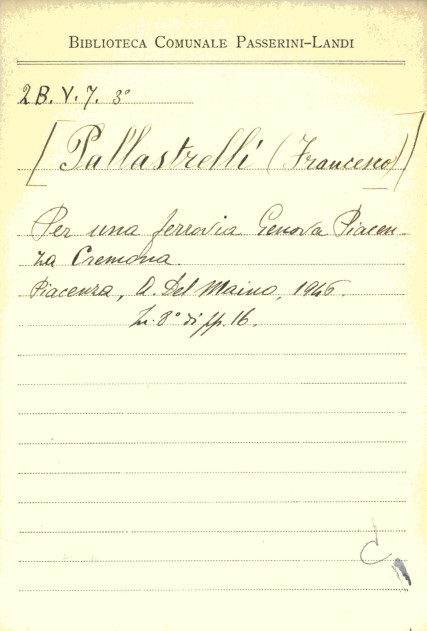 BIBLIOTECA COMUNALE PASSERINI-LANDI
2 B. V. 7. 3°
[Pallastrelli (Francesco)]
Per una ferrovia Genova Piacen-
za Cremona
Piacenza, A. Del Maino, 1946.
In 8° di pp. 16.
C